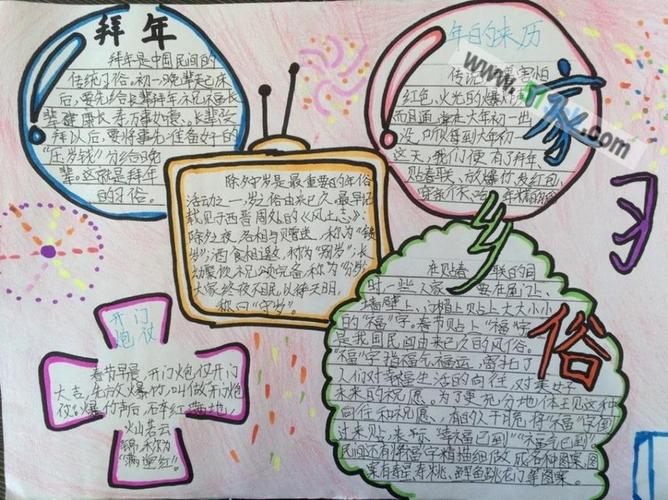 拜年
拜年是中国民间的
传统习俗。初一晚辈起床
后,要先给长辈拜年,祝愿长
辈健康长寿,万事如意。长辈受
拜以后,要将事先准备好的
“压岁钱”分给晚
辈。这就是拜年
的习俗。
年的来历
传说 害怕
红色、火光的爆
而且通常在大年初一出
没,所以每到大年初一
这天,我们便有了拜年、
贴春联、放爆竹、发红包、
家乡习俗
除夕守岁是最重要的年俗
活动之一,守岁之俗由来已久。最早记
载见于西晋周处的《风土志》:
除夕之夜,各相与赠送,称为“馈
岁”;酒食相邀,称为“别岁”;长
幼聚饮,祝颂完备,称为“分岁”;
大家终夜不眠,以待天明,
称曰“守岁”。
开门
炮仗
春节早晨,开门炮仗开门
大吉,先放爆竹,叫做开门炮
仗。爆竹声后,碎红满地,
灿若云
锦,称为
“满堂红”。
在贴春联的同
时,一些人家要在屋门上、
墙壁上、门楣上贴上大大小小
的“福”字。春节贴上“福”字,
是我国民间由来已久的风俗。
“福”字指福气、福运,寄托了
人们对幸福生活的向往,对美好
未来的祝愿。为了更充分地体现这种
向往和祝愿,有的人干脆将“福”字倒
过来贴,表示“幸福已到”“福气已到”
民间还有将“福”字精描细做成各种图案,图
案有寿星、寿桃、鲤鱼跳龙门等图案。